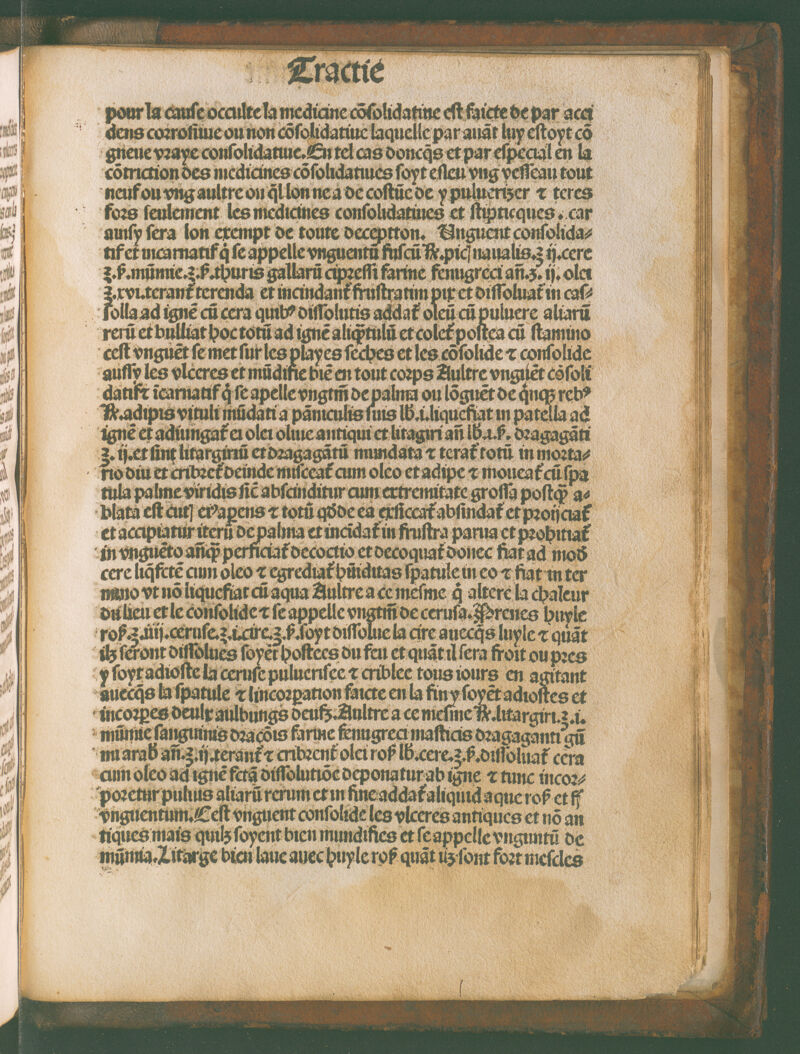 Tractie
pour la cause occulte la medicine cõsolidatiue est faicte de par acci
dens corrosiue ou non cõsolidatiue laquelle par auãt luy estoyt cõ
grieue vraye consolidatiue. En tel cas doncq̃s et par especial en la
cõtriction des medicines cõsolidatiues soyt esleu vng vesseau tout
neuf ou vng aultre ou q̃l lon ne a de costũe de y pulueriser ⁊ teres
fors seulement les medicines consolidatiues et stipticques. car
ainsy sera lon exempt de toute deceptton. Unguent consolida⸗
tif et incarnatif q̃ se appelle vnguentũ fuscũ ℞. pic naualis.ʒ ij.cere
ʒ.ß.mũmie.ʒ.ß.thuris gallarũ cipressi farine fenugreci añ.ʒ. ij. olei
ʒ.xvi.terant̃ terenda et incindant̃ frustratim pix et dissoluat̃ in cas⸗
solla ad ignẽ cũ cera quibꝰ dissolutis addat̃ oleũ cũ puluere aliarũ
rerũ et bulliat hoc totũ ad ignẽ aliq̃tulũ et colet̃ postea cũ stamino
cest vnguẽt se met sur les playes seches et les cõsolide ⁊ consolide
aussy les vlceres et mũdifie biẽ en tout corps Aultre vnguẽt cõsoli
datif⁊ ĩcarnatif q̃ se apelle vngtm̃ de palma ou lõguẽt de q̃nqʒ rebꝰ
℞.adipis vituli mũdati a pãniculis suis lb.i.liquefiat in patella ad
ignẽ et adiungat̃ ei olei oliue antiqui et litagiri añ lb.a.ß. dragagãti
ʒ. ij.et sint litargiriũ et dragagãtũ mundata ⁊ terat̃ totũ in morta⸗
rio diu et cribret̃ deinde misceat̃ cum oleo et adipe ⁊ moueat̃ cũ spa
tula palme viridis sic̃ abscinditur cum extremitate grossa postq̃ a⸗
blata est cut erꝰapens ⁊ totũ qd̃ de ea exsiccat̃ absindat̃ et proijciat̃
et accipiatur iterũ de palma et incidat̃ in frustra parua et prohitiat̃
in vnguẽto añq̃ perficiat̃ decoctio et decoquat̃ donec fiat ad mod̃
cere liq̃fctẽ cum oleo ⁊ egrediat̃ hũiditas spatule in eo ⁊ fiat in ter
mino vt nõ liquefiat cũ aqua Aultre a ce mesme q̃ altere la chaleur
du lieu et le consolide ⁊ se appelle vngtm̃ de cerusa. Prenes huyle
roß.ʒ.iiij.ceruse.ʒ.i.cire.ʒ.ß.soyt dissolue la cire auecq̃s luyle ⁊ quãt
ilʒ seront dissolues soyẽt hostees du feu et quãt il sera froit ou pres
y soyt adioste la ceruse puluerisee ⁊ criblee tous iours en agitant
auecq̃s la spatule ⁊ lincorpation faicte en la fin y soyẽt adiostes et
incorpes deulx aulbungs deufʒ. Aultre a ce mesme ℞.litargiri.ʒ.i.
mũmie sanguinis dracõis farine fenugreci masticis dragaganti gũ
mi arab̃ añ.ʒ.ij.terant̃ ⁊ cribrent̃ olei roß lb.cere.ʒ.ß.dissoluat̃ cera
cum oleo ad ignẽ fctã dissolutiõe deponatur ab igne ⁊ tunc incor⸗
poretur puluis aliarũ rerum et in fine addat̃ aliquid aque roß et fi
vnguentum. Cest vnguent consolide les vlceres antiques et nõ an
tiques mais quilʒ soyent bien mundifies et se appelle vnguntũ de
mũmia. Litarge bien laue auec huyle roß quãt ilʒ sont fort mesles